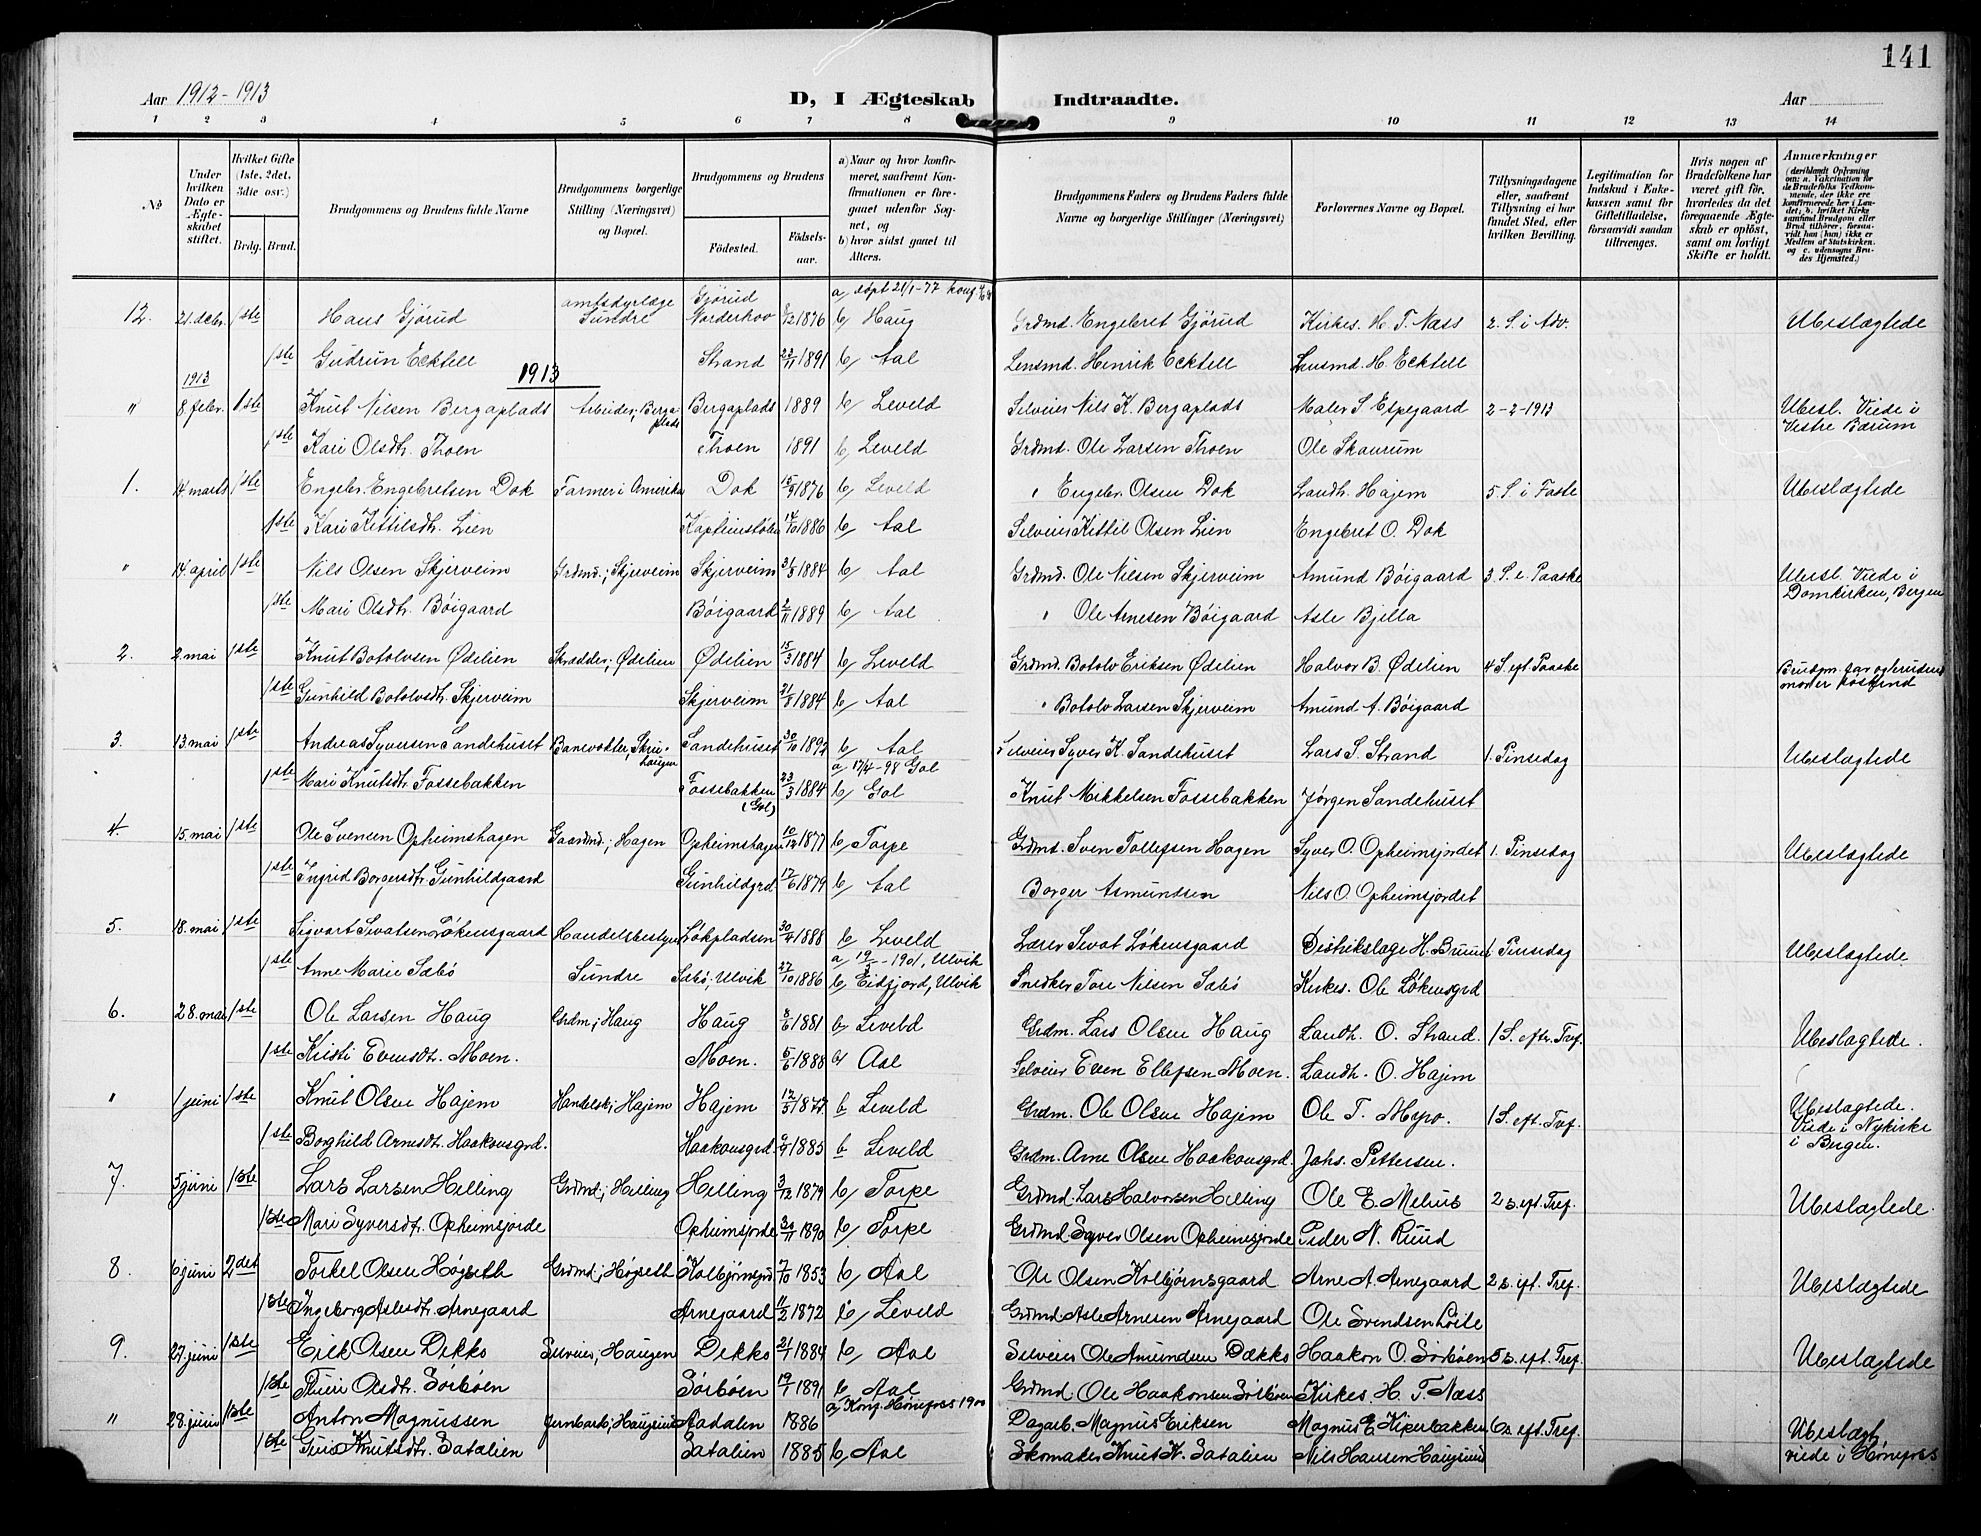 141
Aar 1912-1913
D, I Ægteskab Indtraadte.
Aar
1 2 3 4 5 6 7 8 9 10 11 12 13 14
№
Under hvilken Dato er Ægteskabet stiftet.
Hvilket Gifte (1ste, 2det, 3die osv.)
Brdg. Brud.
Brudgommens og Brudens fulde Navne
Brudgommens borgerlige Stilling (Næringsvei) og Bopæl.
Brudgommens og Brudens
Fødested.
Fødselsaar.
a) Naar og hvor konfirmeret, saafremt Konfirmationen er foregaaet udenfor Sognet, og
b) hvor sidst gaaet til Alters.
Brudgommens Faders og Brudens Faders fulde Navne og borgerlige Stillinger (Næringsvei)
Forlovernes Navne og Bopæl.
Tillysningsdagene eller, saafremt Tillysning ei har fundet Sted, efter hvilken Bevilling.
Legitimation for Indskud i Enkekassen samt for Giftetilladelse, forsaavidt saadan tiltrænges.
Hvis nogen af Brudefolkene har været gift før, hvorledes da det foregaaende Ægteskab er opløst, samt om lovligt Skifte er holdt.
Anmærkninger (deriblandt Oplysning om: a. Vakcination for de Brudefolks Vedkommende, der ikke ere konfirmerede her i Landet; b. hvilket Kirkesamfund Brudgom eller Brud tilhører, forsaavidt han (hun) ikke er Medlem af Statskirken, og c. udensogns Brudes Hjemsted.)
12. 21. debr. 1ste Hans Gjørud amtsdyrlæge Sundre Gjørud Norderhov 1876 a, døpt 21/1-77 b, Haug Grdmd. Engebret Gjørud Kirkes. H. T. Næss 2. S. i Adv. Ubeslægtede
1ste Gudrun Ecktell Strand 23/11 1891 b, Aal Lensmd. Henrik Ecktell Lensmd. H. Ecktell
1913 1913
" 8 febr. 1ste Knut Nilsen Bergaplads Arbeider, Bergaplads Bergaplads 1889 b, Leveld Selveier Nils K. Bergaplads Maler S. Espegaard 2-2-1913 Ubesl. Viede i Vestre Bærum
1ste Kari Olsdtr. Thoen Thoen 1891 b, Leveld Grdmd. Ole Larsen Thoen Ole Skaurum
1. 14 marts 1ste Engebr. Engebretsen Dok Farmer i Amerika Dok 1876 b, Leveld " Engebr. Olsen Dok Landh. Hajem 5. S. i Faste Ubeslægtede
1ste Kari Kittilsdtr. Lien 14/10 1886 b, Aal Selveier Kittil Olsen Lien Engebret O. Dok
" 14. april 1ste Nils Olsen Skjerveim Grdmd.; Skjerveim Skjerveim 31/3 1884 b, Aal Grdmd. Ole Nilsen Skjerveim Amund Bøigaard 3 S. e. Paaske Ubesl. Viede i Domkirken, Bergen
1ste Mari Olsdtr. Bøigaard Bøigaard 2/11 1889 b, Aal " Ole Arnesen Bøigaard Asle Bjella
2. 2. mai 1ste Knut Botolvsen Ødelien Skrædder; Ødelien Ødelien 15/3 1884 b, Leveld Grdmd. Botolv Eriksen Ødelien Halvor B. Ødelien 4 S. eft. Paaske Brudgm. far og brudens moder
1ste Gunhild Botolvsdtr. Skjerveim Skjerveim 21/8 1884 b, Aal " Botolv Larsen Skjerveim Amund A. Bøigaard
3. 13. mai 1ste Andreas Syversen Sandehuset Banevokter, Sandehuset 30/10 1892 b, Aal Selveier Syver K. Sandehuset Lars S. Strand 1. Pinsedag Ubeslægtede
1ste Mari Knutsdtr. Fossebakken Fossebakken (Gol) 23/3 1884 a, 17/4-98 Gol b, Gol " Knut Mikkelsen Fossebakken Jørgen Sandehuset
4. 15. mai 1ste Ole Svensen Opheimshagen Gaardmd.; Hagen Opheimshagen 10/12 1877 b, Torpe Grdmd. Sven Tollefsen Hagen Syver O. Opheimsjordet 1. Pinsedag Ubeslægtede
1ste Ingrid Borgersdtr. Gunhildgaard Gunhildgrd. 17/6 1879 b, Aal Borger Asmundsen Nils O. Opheimsjordet
5. 18. mai 1ste Sigvart Sevatsen Løkensgaard Handelsbestyrer Løkpladsen 30/4 1888 b, Leveld Lærer Sevat Løkensgaard Distrikslæge H. Bruun 1 Pinsedag Ubeslægtede
1ste Anne Marie Sæbø Sundre Sæbø, Ulvik 27/10 1886 a, 19/5-1901, Ulvik b, Eidfjord, Ulvik Snedker Tore Nilsen Sæbø Kirkes. Ole Løkensgrd
6. 28. mai 1ste Ole Larsen Haug Grdm; Haug Haug 8/6 1881 b, Leveld Grdm. Lars Olsen Haug Landh. O. Strand. 1 S. eftr. Tref. Ubeslægtede.
1ste Kristi Evensdt. Moen. Moen. 5/6 1888 b, Aal Selveier Even Ellefsen Moen. Landh. O. Hajem
" 1 juni 1ste Knut Olsen Hajem Handelsk; Hajem Hajem 12/3 1877 b, Leveld Grdm. Ole Olsen Hajem Ole T. Myro. 1 S. eft. Tref. Ubeslægtede. Viede i Nykirke i Bergen.
1ste Borghild Arnesdt. Haakonsgrd. Haakonsgrd. 6/9 1885 b, Leveld Grdm. Arne Olsen Haakonsgrd. Johs. Pettersen.
7. 5 juni 1ste Lars Larsen Helling Grdmd; Helling Helling 3/12 1879 b, Torpe Grdmd Lars Halvorsen Helling Ole E. Mehus 2 s. eft. Tref. Ubeslægtede.
1ste Mari Syversdt. Opheimsjorde Opheimsjorde 30/11 1890 b, Torpe Grdmd. Syver Olsen Opheimsjorde Peder N. Ruud
8. 6 juni 2det Torkel Olsen Højseth Grdmd; Højseth Kolbjørnsgrd 7/10 1853 b, Aal Ole Olsen Kolbjørnsgaard Arne A. Arnegaard 2 s. eft. Tref. Ubeslægtede
1ste Ingeborg Aslesdt. Arnegaard Arnegaard 11/2 1872 b, Leveld Grdmd Asle Arnesen Arnegaard Ole Svendsen Loite
9. 27. juni 1ste Erik Olsen Dekko Selveier, Haugen Dekko 21/1 1884 b, Aal Selveier Ole Amundsen Dækko Haakon O. Sørbøen 5 s. eft. Tref. Ubeslægtede
1ste Olsdt. Sørbøen Sørbøen 19/1 1891 b, Aal Grdmd Ole Haakonsen Sørbøen Kirkes. H. T. Næss
" 28. juni 1ste Anton Magnussen Jernbarb; Haugsund Aadalen 1886 a, Konf. Hønefoss 1900 Dagarb. Magnus Eriksen Magnus E. Kiperbakken 6 s. eft. Tref. Ubeslægt. viede i Hønefoss
1ste Guri Knutsdtr. Sataliен Satalien 1885 b, Aal Skomaker Knut K. Satalien Nils Hansen Haugsund